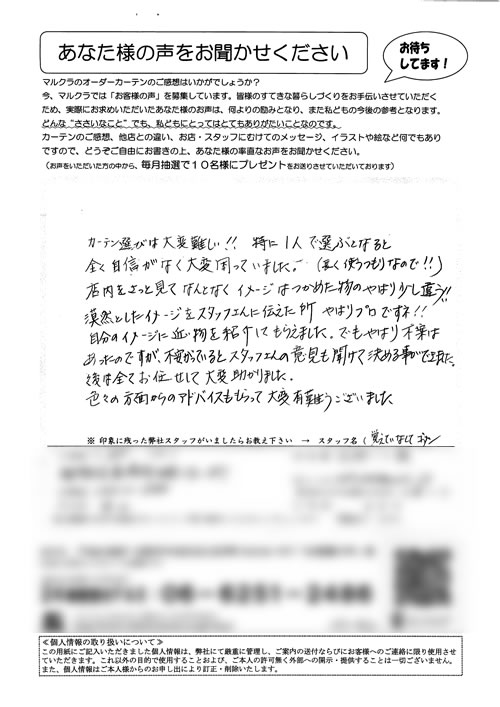 あなた様の声をお聞かせください
お待ち
してます！
マルクラのオーダーカーテンのご感想はいかがでしょうか？
今、マルクラでは「お客様の声」を募集しています。皆様のすてきな暮らしづくりをお手伝いさせていただく
ため、実際にお求めいただいたあなた様のお声は、何よりの励みとなり、また私どもの今後の参考となります。
どんな “ささいなこと” でも、私どもにとってはとてもありがたいことなのです。
カーテンのご感想、他店との違い、お店・スタッフにむけてのメッセージ、イラストや絵など何でもあり
ですので、どうぞご自由にお書きの上、あなた様の率直なお声をお聞かせください。
（お声をいただいた方の中から、毎月抽選で１０名様にプレゼントをお送りさせていただいております）
カーテン選びは大変難しい!! 特に1人で選ぶとなると
全く自信がなく大変困っていました。(長く使うつもりなので!!)
店内をさっと見てなんとなくイメージはつかめた物のやはり少し違う!!
漠然としたイメージをスタッフさんに伝えた所 やはりプロですネ!!
自分のイメージに近い物を紹介してもらえました。でもやはり不安は
あったのですが、不安がでているとスタッフさんの意見も聞けて決める事ができました。
後は全てお任せして大変助かりました。
色々の方面からのアドバイスももらって大変有難うございました
※ 印象に残った弊社スタッフがいましたらお教え下さい → スタッフ名（ 覚えていなくてゴメン
≪個人情報の取り扱いについて≫
この用紙にご記入いただきました個人情報は、弊社にて厳重に管理し、ご案内の送付ならびにお客様へのご連絡に限り使用させ
ていただきます。これ以外の目的で使用することおよび、ご本人の許可無く外部への開示・提供することは一切ございません。
また、個人情報はご本人様からのお申し出により訂正・削除いたします。